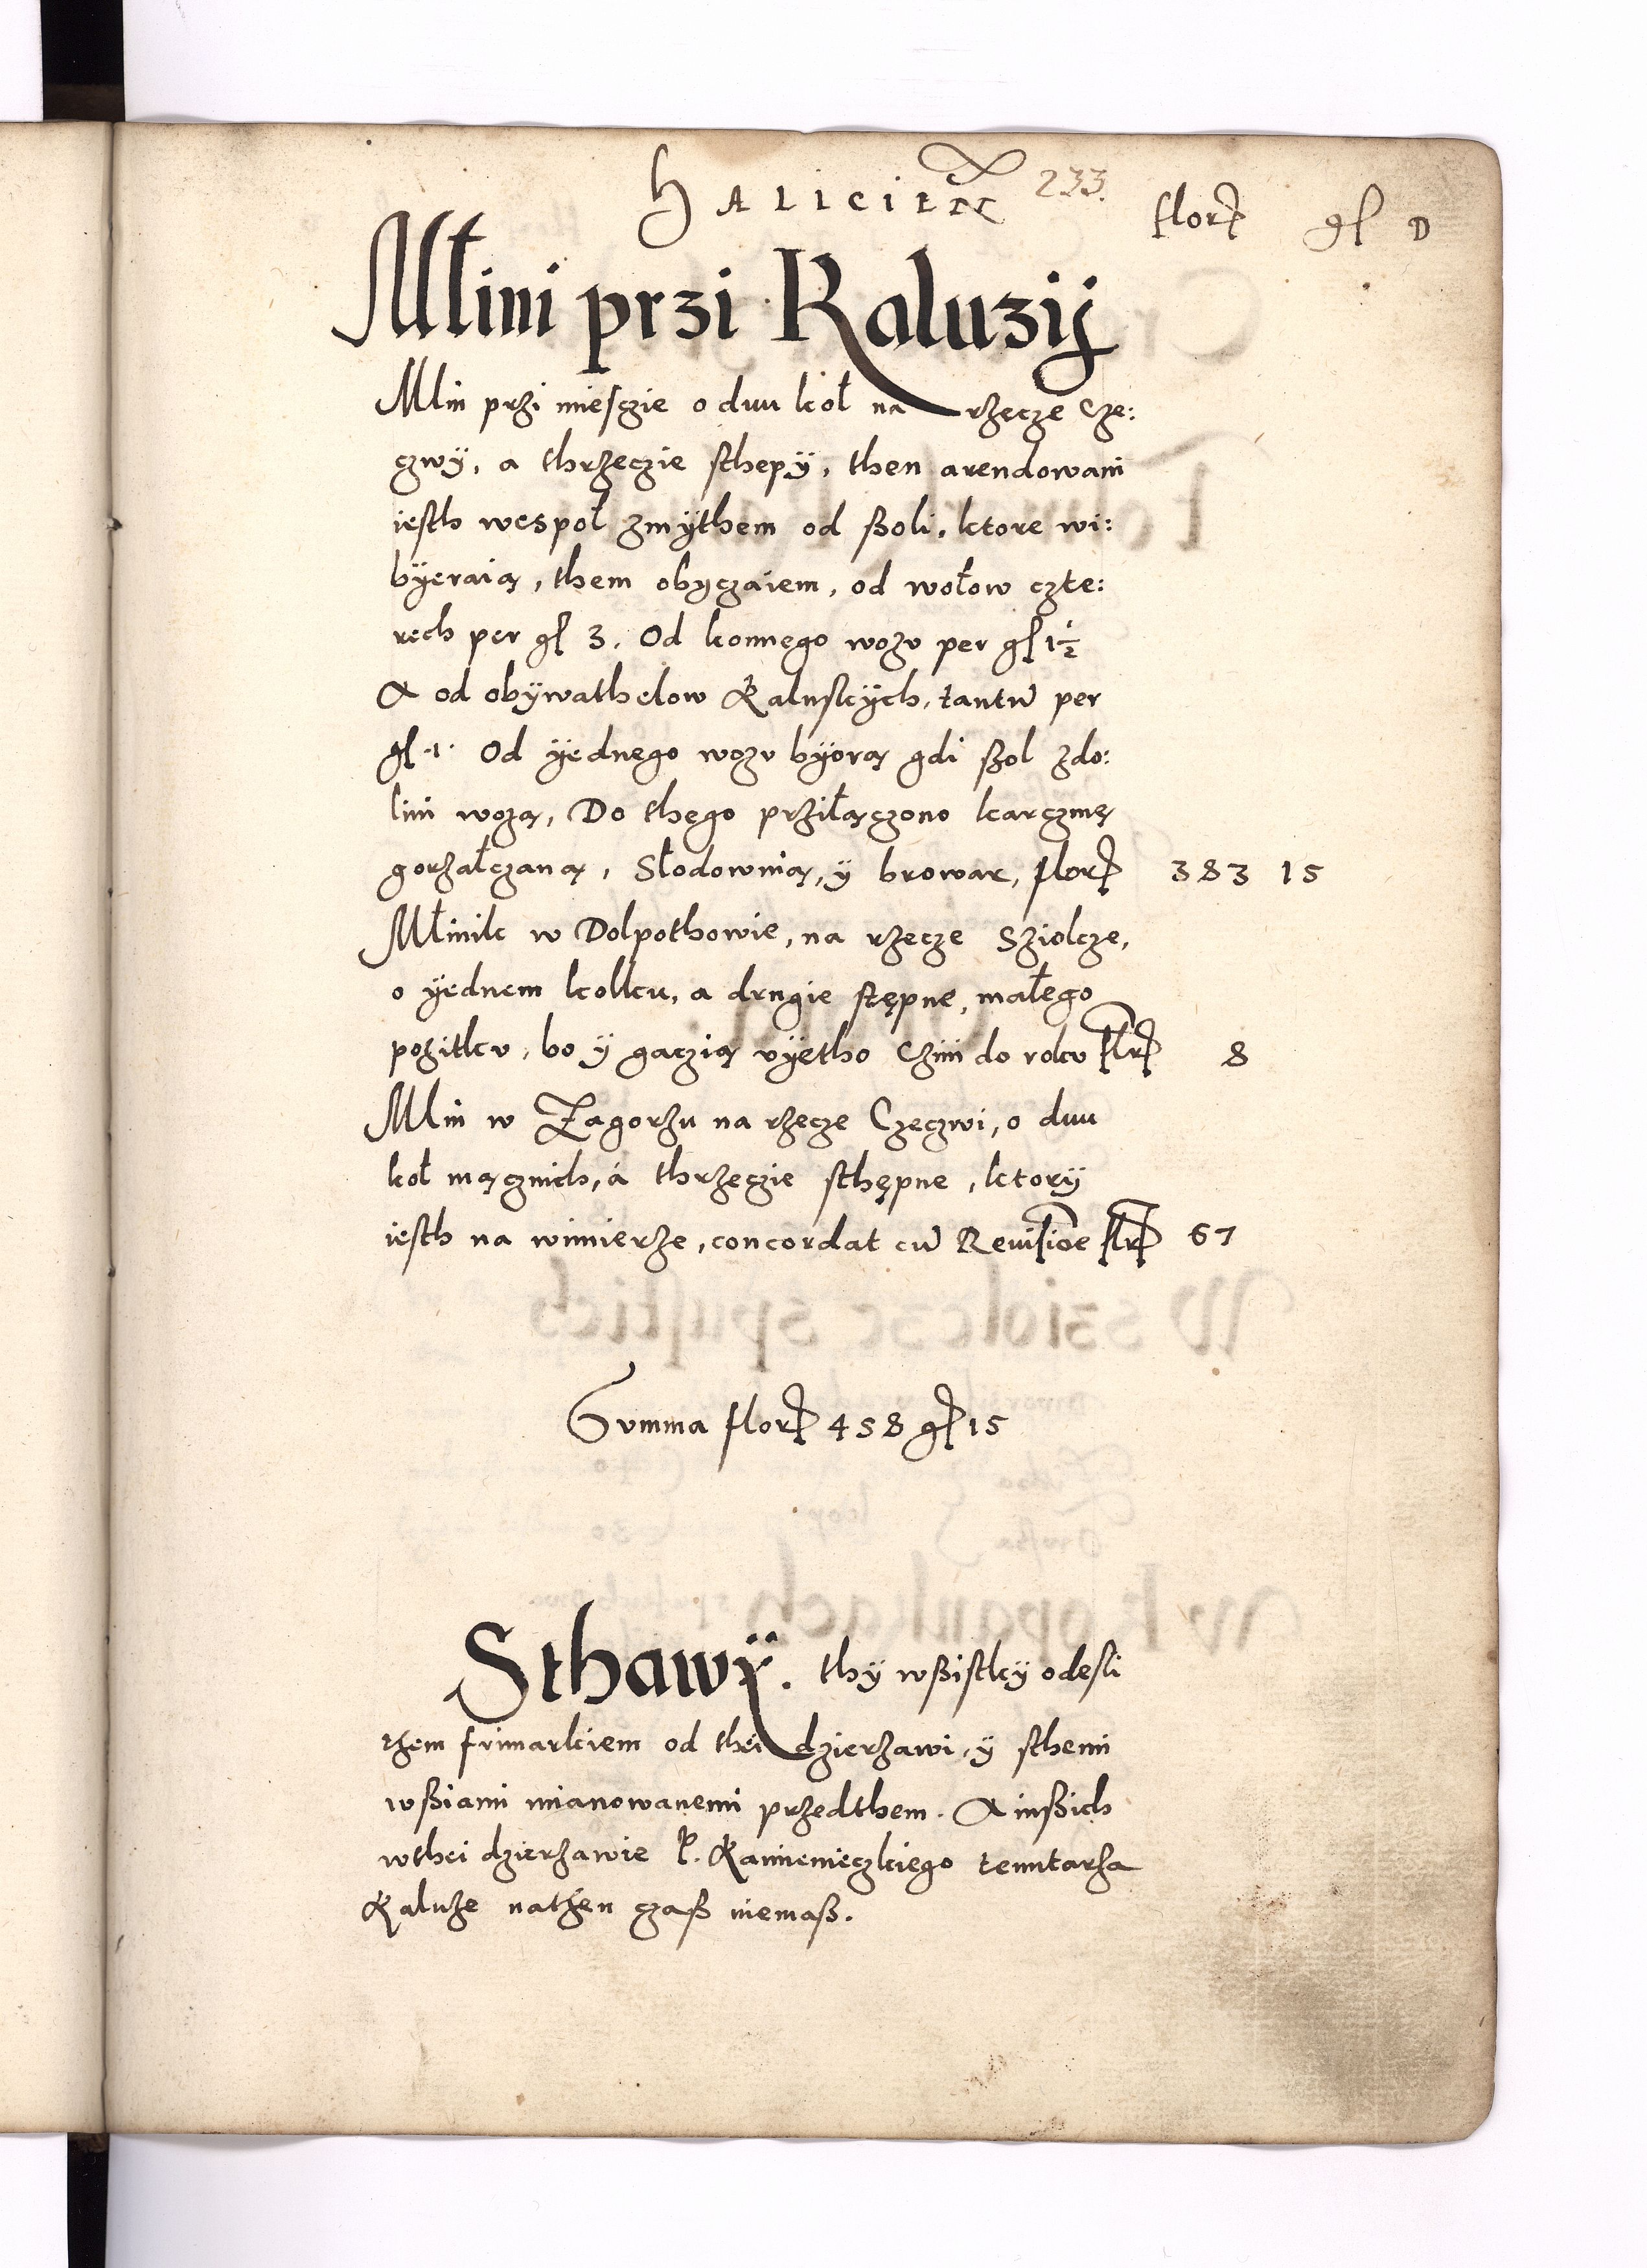 Halicien 233. flor gſ D
Młini przi Kaluzij
Mlin przi mieſczie o dwu koł na rzecze Cze:
czwÿ, a thrzeczie ſthepÿ, then arendowani
ieſth weſpoł zmÿthem od ßoli, ktore wi:
bÿeraią, them obyczaiem, od wołow czte:
rech per gſ 3. Od konnego wozv per gſ 1½
A od obÿwathelow Kaluſkÿch, tantū per
gſ ·1· Od ÿednego wozv bÿorą gdi ßol zdo:
lini wozą, Do thego przilączono karczmę
gorzałczaną, Słodownią, ÿ browar, flor 383 15
Młinik w Dolpothowie, na rzecze Sziolcze,
o ÿednem kolku, a drugie ſtępne, małego
pozitkv, bo ÿ gaczią vÿetho Czini do rokv flr 8
Mlin w Zagorzu na rzecze Czeczwi, o dwu
koł mącznich, á thrzeczie ſthępne, ktorÿ
ieſth na wimierze, concordat cū Reuiſioe flr 67
Summa flor 458 gſ 15
Sthawÿ. thÿ wßiſtkÿ odeſli
rzem frimarkiem od théi dzierzawi, ÿ ſthemi
wßiami mianowanemi przedthem. A inßich
wthei dzierzawie P. Kamienieczkiego tenutarza
Kaluze nathen czaß niemaß.